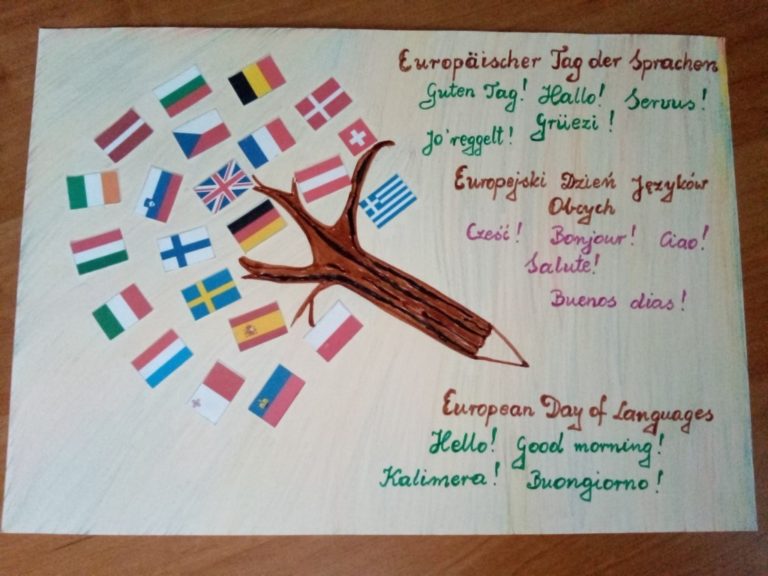 Europäischer Tag der Sprachen
Guten Tag! Hallo! Servus!
Jo'reggelt! Grüezi!
Europejski Dzień Języków
Obcych
Cześć! Bonjour! Ciao!
Salute!
Buenos dias!
European Day of Languages
Hello! Good morning!
Kalimera! Buongiorno!